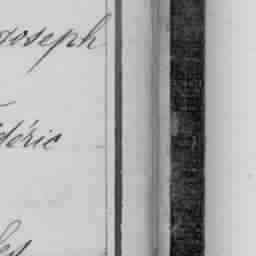 Joseph
déric
les